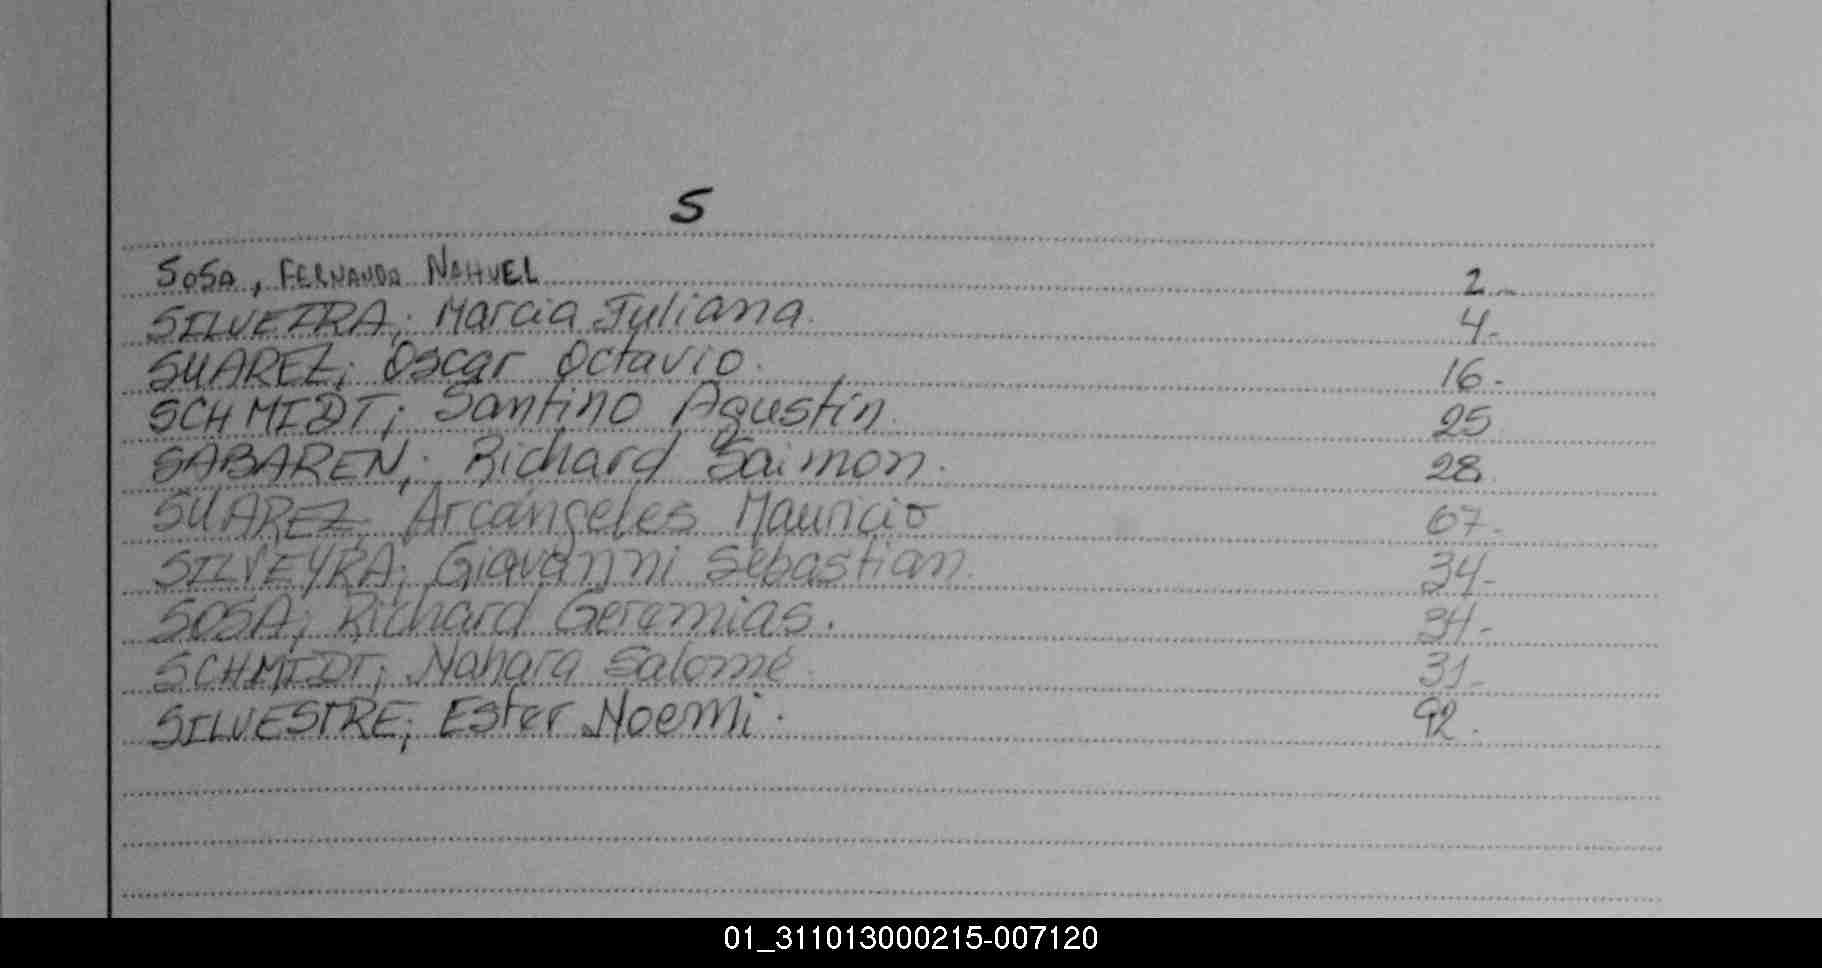 S
SOSA, FERNANDO NAHUEL 2.
SILVEIRA; Marcia Juliana. 4.
SUAREZ; Oscar Octavio. 16.
SCHMIDT; Santino Agustín. 25
SABAREN; Richard Saimon. 28.
SUAREZ; Arcángeles Mauricio 67.
SILVEYRA; Giavanni Sebastian. 34.
SOSA; Richard Geremias. 34.
SCHMIDT; Nahara Salomé. 31.
SILVESTRE; Ester Noemi. 92.
01_311013000215-007120